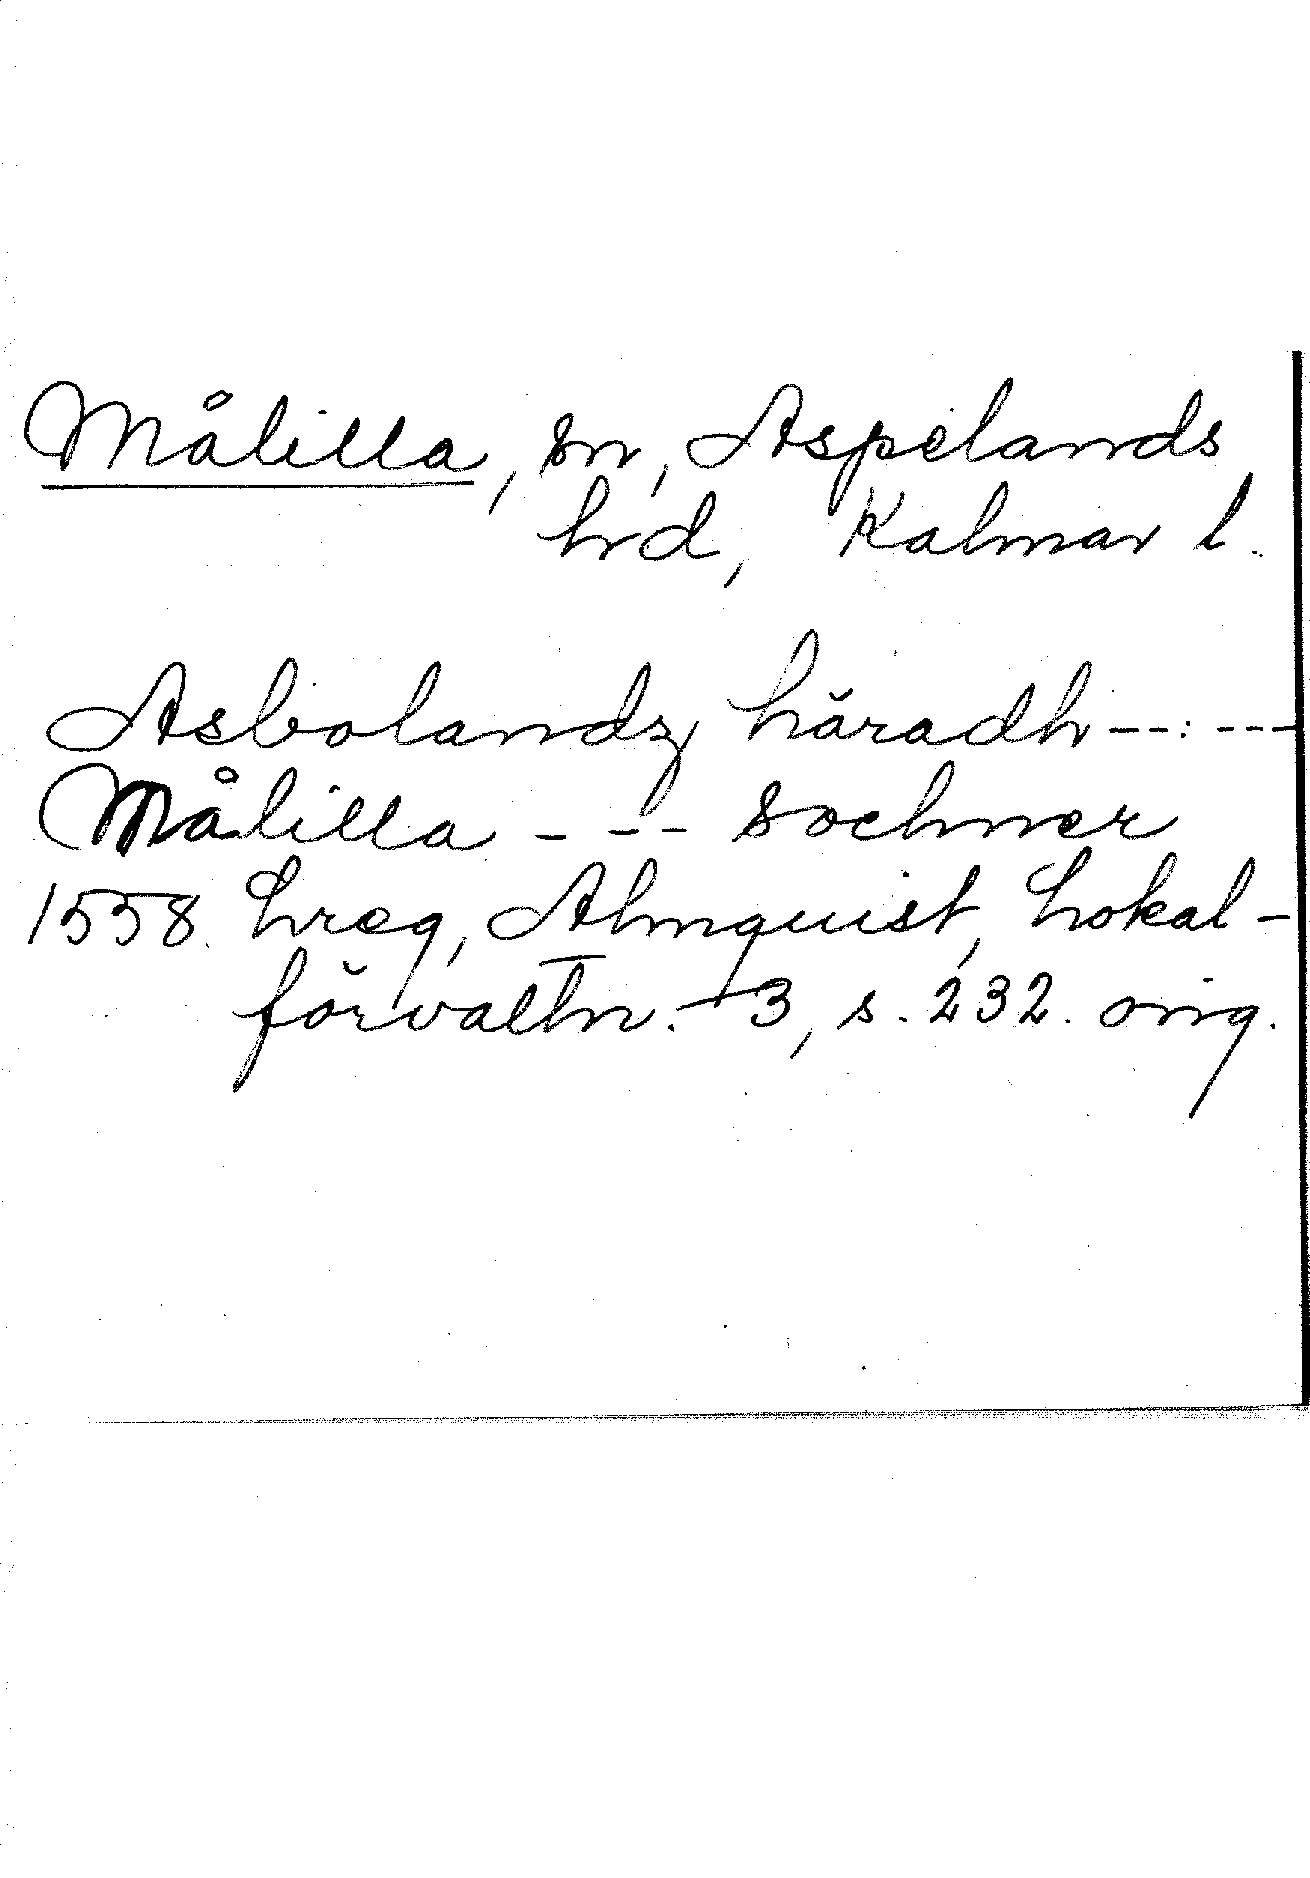 Målilla, sn, Aspelands
hrd, Kalmar l.
Asbolandz häradh --:---
Målilla - -- sochner
1558 hreg, Almquist, Lokal-
förvaltn. 3, s. 232. orig.